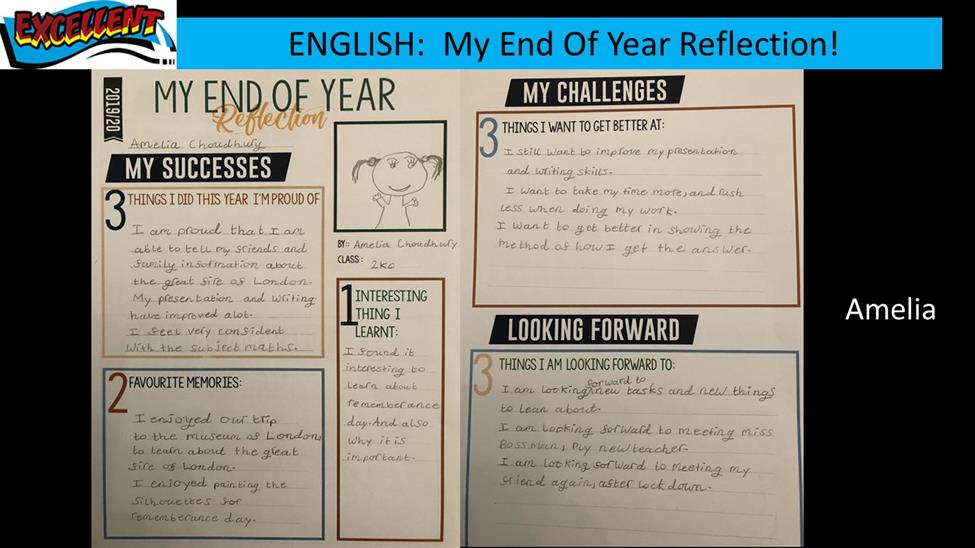 EXCELLENT
ENGLISH: My End Of Year Reflection!
2019/20
MY END OF YEAR
Reflection
Amelia Choudhury
MY SUCCESSES
3 THINGS I DID THIS YEAR I'M PROUD OF
I am proud that I am
able to tell my friends and
family information about
the great fire of London.
My presentation and writing
have improved alot.
I feel very confident
with the subject maths.
2 FAVOURITE MEMORIES:
I enjoyed our trip
to the museum of London
to learn about the great
fire of London.
I enjoyed painting the
silhouettes for
rememberance day.
BY: Amelia Choudhury
CLASS: 2KC
1 INTERESTING
THING I
LEARNT:
I found it
interesting to
learn about
rememberance
day. And also
why it is
important.
MY CHALLENGES
3 THINGS I WANT TO GET BETTER AT:
I still want to improve my presentation
and writing skills.
I want to take my time more, and rush
less when doing my work.
I want to get better in showing the
method of how I get the answer.
LOOKING FORWARD
3 THINGS I AM LOOKING FORWARD TO:
I am looking forward to new tasks and new things
to lean about.
I am looking forward to meeting miss
Bossman, my new teacher.
I am looking forward to meeting my
friend again, after lockdown.
Amelia